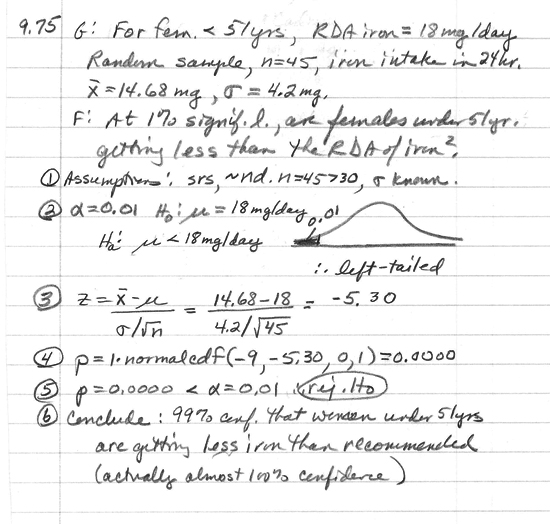 9.75 G: For fem. < 51yrs, RDA iron = 18 mg/day
Random sample, n=45, iron intake in 24hr.
x̄ = 14.68 mg, σ = 4.2 mg.
F: At 1% signif. l., are females under 51yr.
getting less than the RDA of iron?
① Assumptions: srs, ~nd. n=45>30, σ known.
② α=0.01 H₀: μ = 18mg/day 0.01
Hₐ: μ < 18mg/day
∴ left-tailed
③ z = x̄-μ / σ/√n = 14.68-18 / 4.2/√45 = -5.30
④ p = 1·normalcdf(-9, -5.30, 0, 1) = 0.0000
⑤ p = 0.0000 < α = 0.01 ∴ rej. H₀
⑥ Conclude: 99% conf. that women under 51yrs
are getting less iron than recommended
(actually almost 100% confidence)